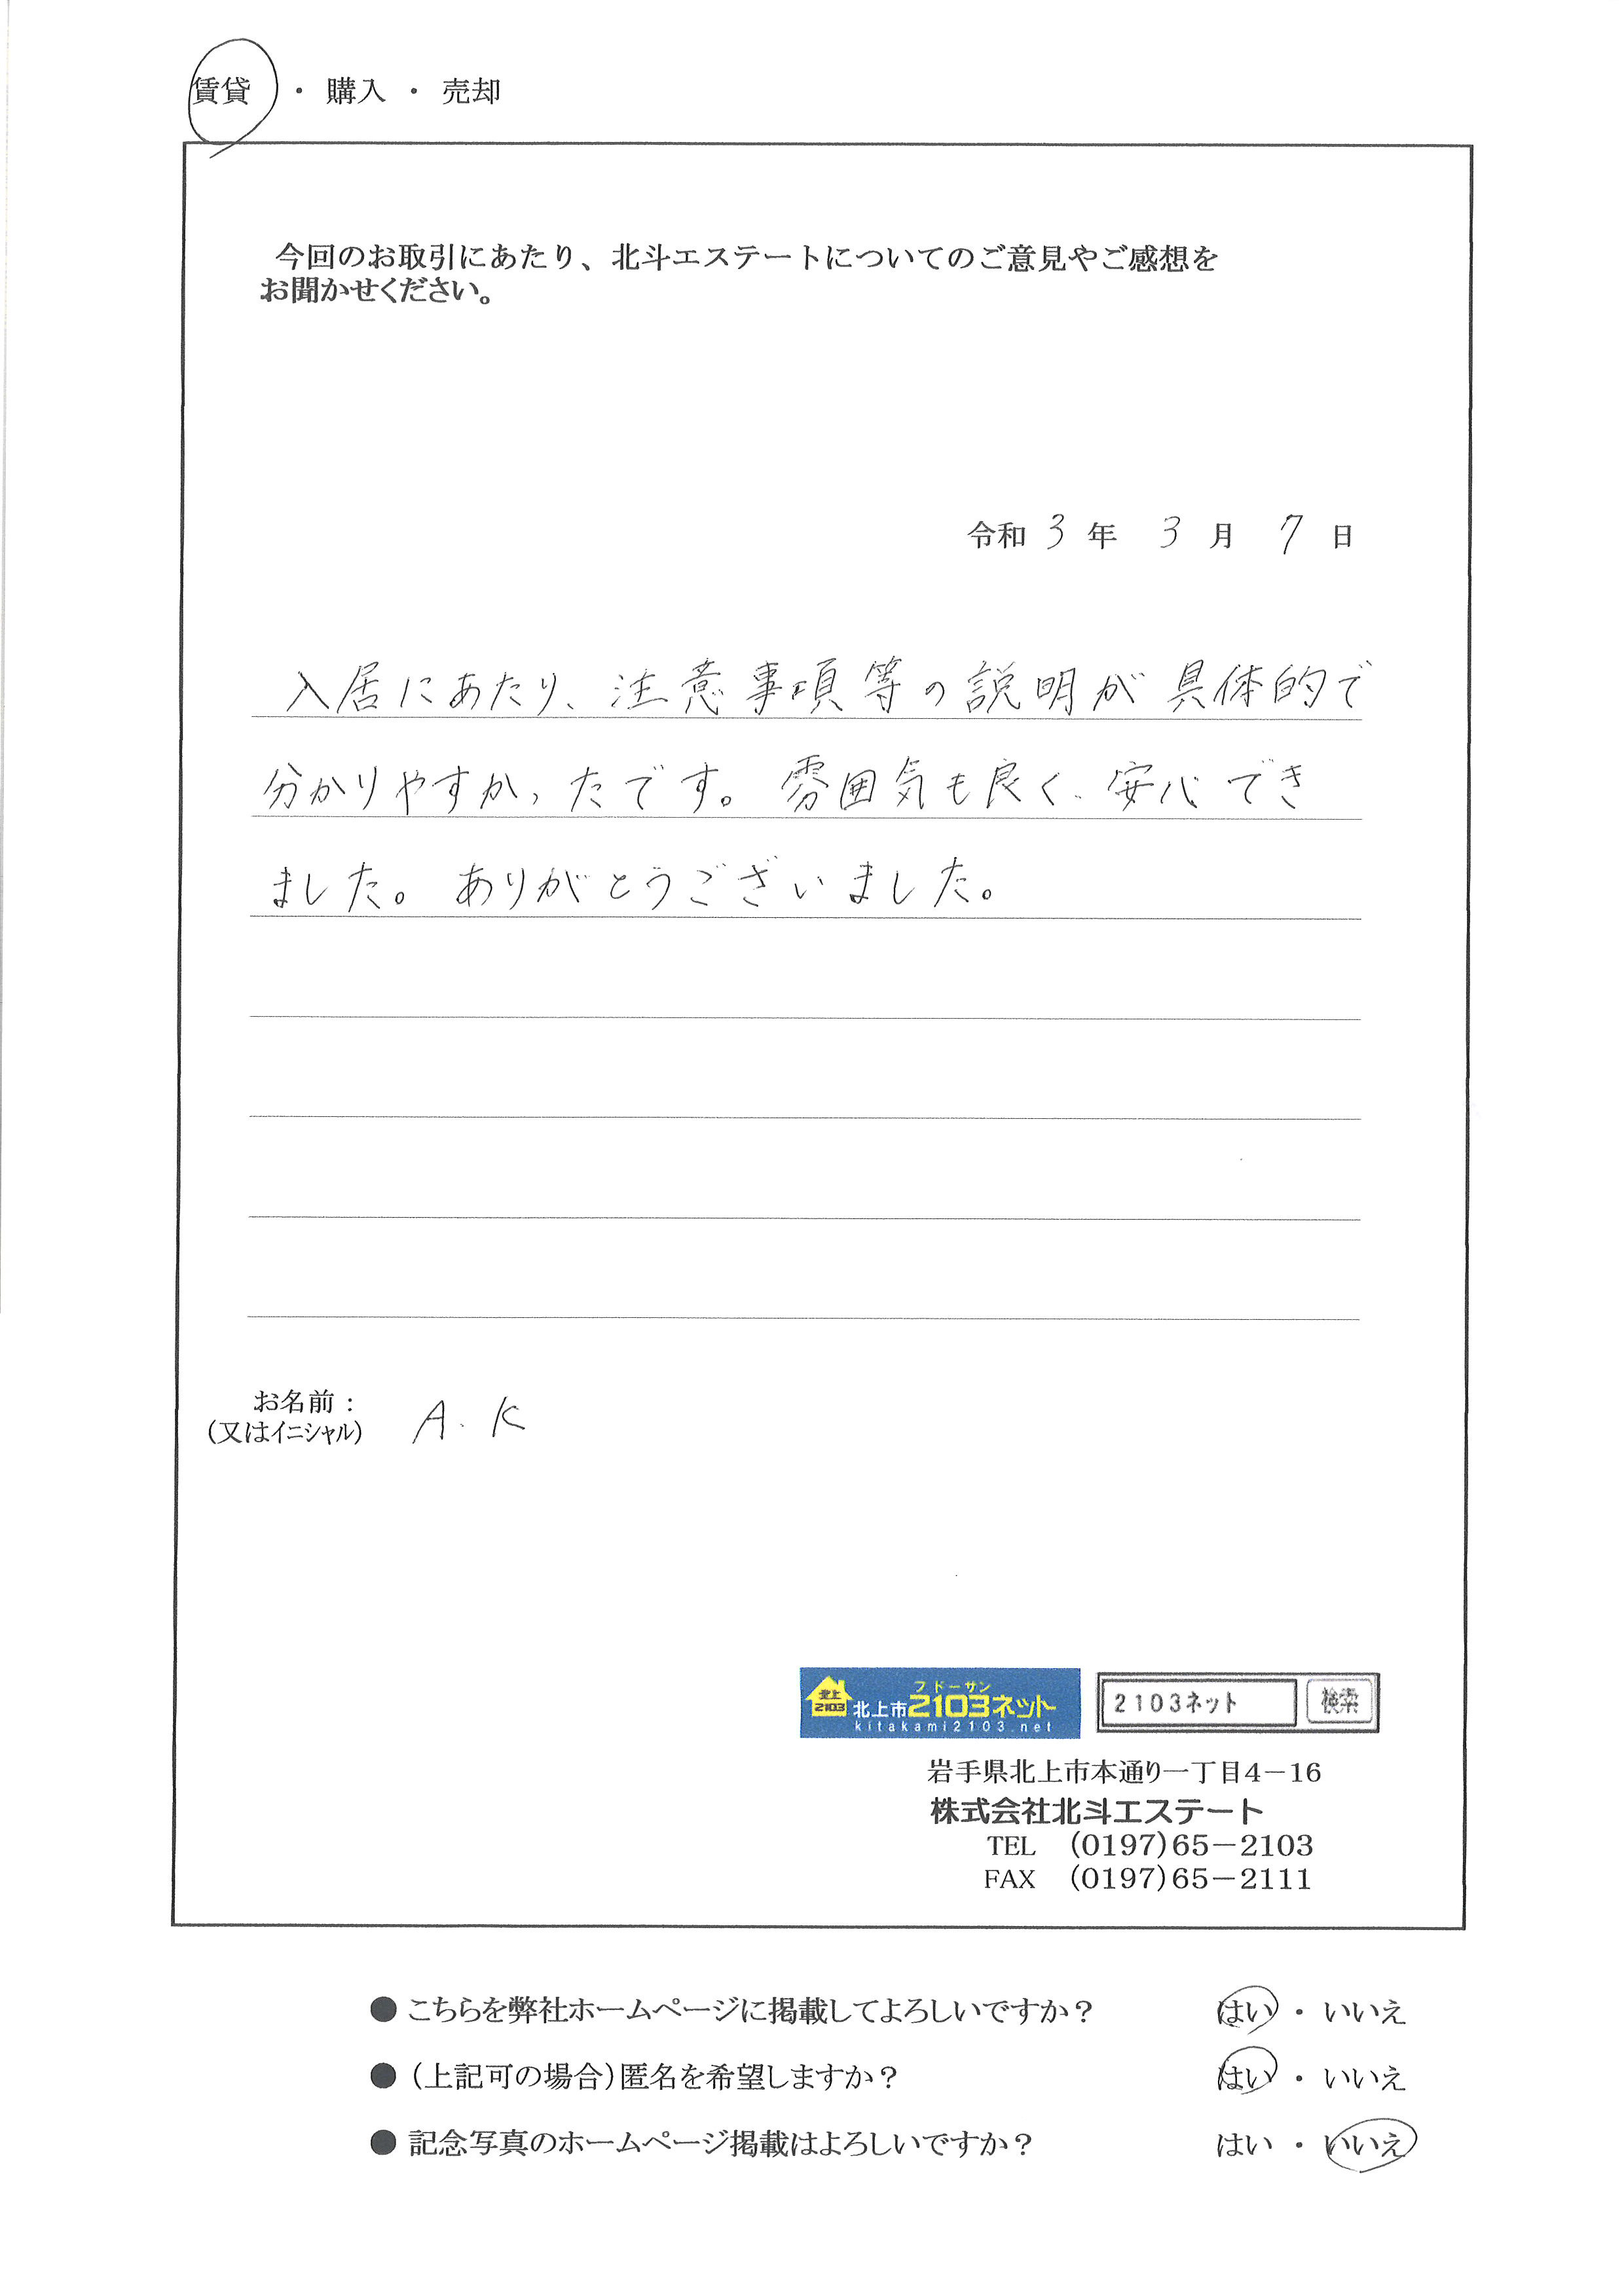 賃貸 ・ 購入 ・ 売却
今回のお取引にあたり、北斗エステートについてのご意見やご感想を
お聞かせください。
令和 3 年 3 月 7 日
入居にあたり、注意事項等の説明が具体的で
分かりやすかったです。雰囲気も良く、安心でき
ました。ありがとうございました。
お名前：
（又はイニシャル） A.K
フドーサン
北上 2103 北上市2103ネット
kitakami2103.net
2103ネット 検索
岩手県北上市本通り一丁目4－16
株式会社北斗エステート
TEL （0197）65－2103
FAX （0197）65－2111
● こちらを弊社ホームページに掲載してよろしいですか？ はい ・ いいえ
● （上記可の場合）匿名を希望しますか？ はい ・ いいえ
● 記念写真のホームページ掲載はよろしいですか？ はい ・ いいえ